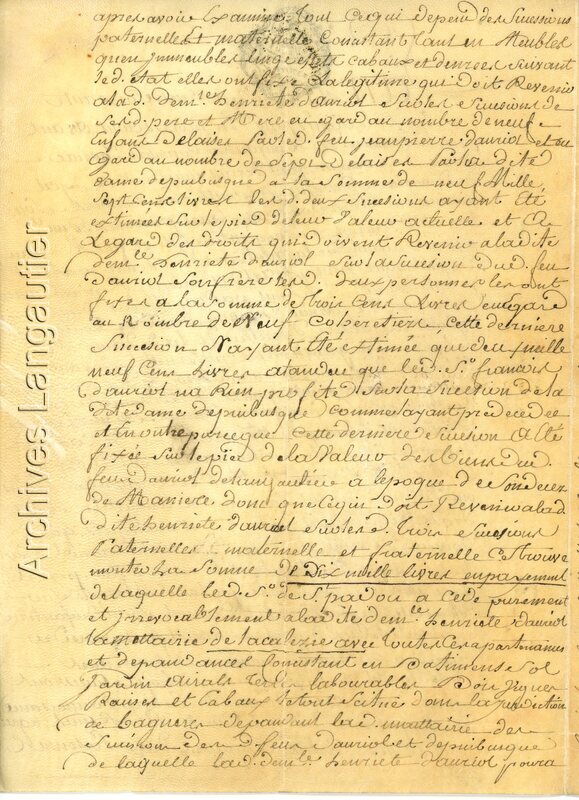 apres avoir Examiné tout ce qui depend des sucessions
paternelle et maternelle Consistant tant en Meubles
quen jmmeubles linge effets cabaux et denrees suivant
led. état elles ont fixé la legitime qui doit Revenir
a la d. dem.lle henriete dauriol sur les sucessions de
sesd. pere et Mere eu egard au nombre de neuf
Enfans delaisés par led. feu jean pierre dauriol et eu
Egard au nombre de Sept delaisés par la dite
dame depuibusque a la somme de neuf Mille
Sept Cens livres lesd. deux sucesions ayant été
estimées sur le pied de leur valeur actuelle et a
Legard des droits qui doivent Revenir a la dite
dem.lle henriete dauriol sur la sucesion dud. feu
dauriol son frere lesd. deux personnes les ont
fixés a la somme de trois Cens livres eu egard
au Nombre de Neuf coheretiers, cette derniere
sucesion Nayant été estimée que deux mille
neuf Cens livres atandeu que led. S.r francois
dauriol na Rien profité sur la sucesion de la
dite dame depuibusque comme ayant predecedée
et En outre parce que cette derniere sucesion a été
fixée sur le pied de la valeur des biens dud.
feu dauriol de langautier a lepoque de son deces
de Maniere donc que ce qui doit Revenir a la d
dite henriete dauriol sur lesd. trois sucesions
Paternelles maternelle et fraternelle se trouve
monter La somme de Dix mille livres en payement
de laquelle led. S.r de S.t padou a cedé purement
et jrrevocablement a la dite dem.lle henriete dauriol
la mettairie de lacalezie avec toutes ses apartenances
et depandances Consistant en Batimens Sol
Jardin terres labourables Bois Vignes
et Cabaux le tout scitué dans la jurediction
de Bagneres dependant lad. mettairie des
sucesions desd. feus dauriol et depuibusque
de laquelle lad. dem.lle henriete dauriol pourra
Archives Langautier